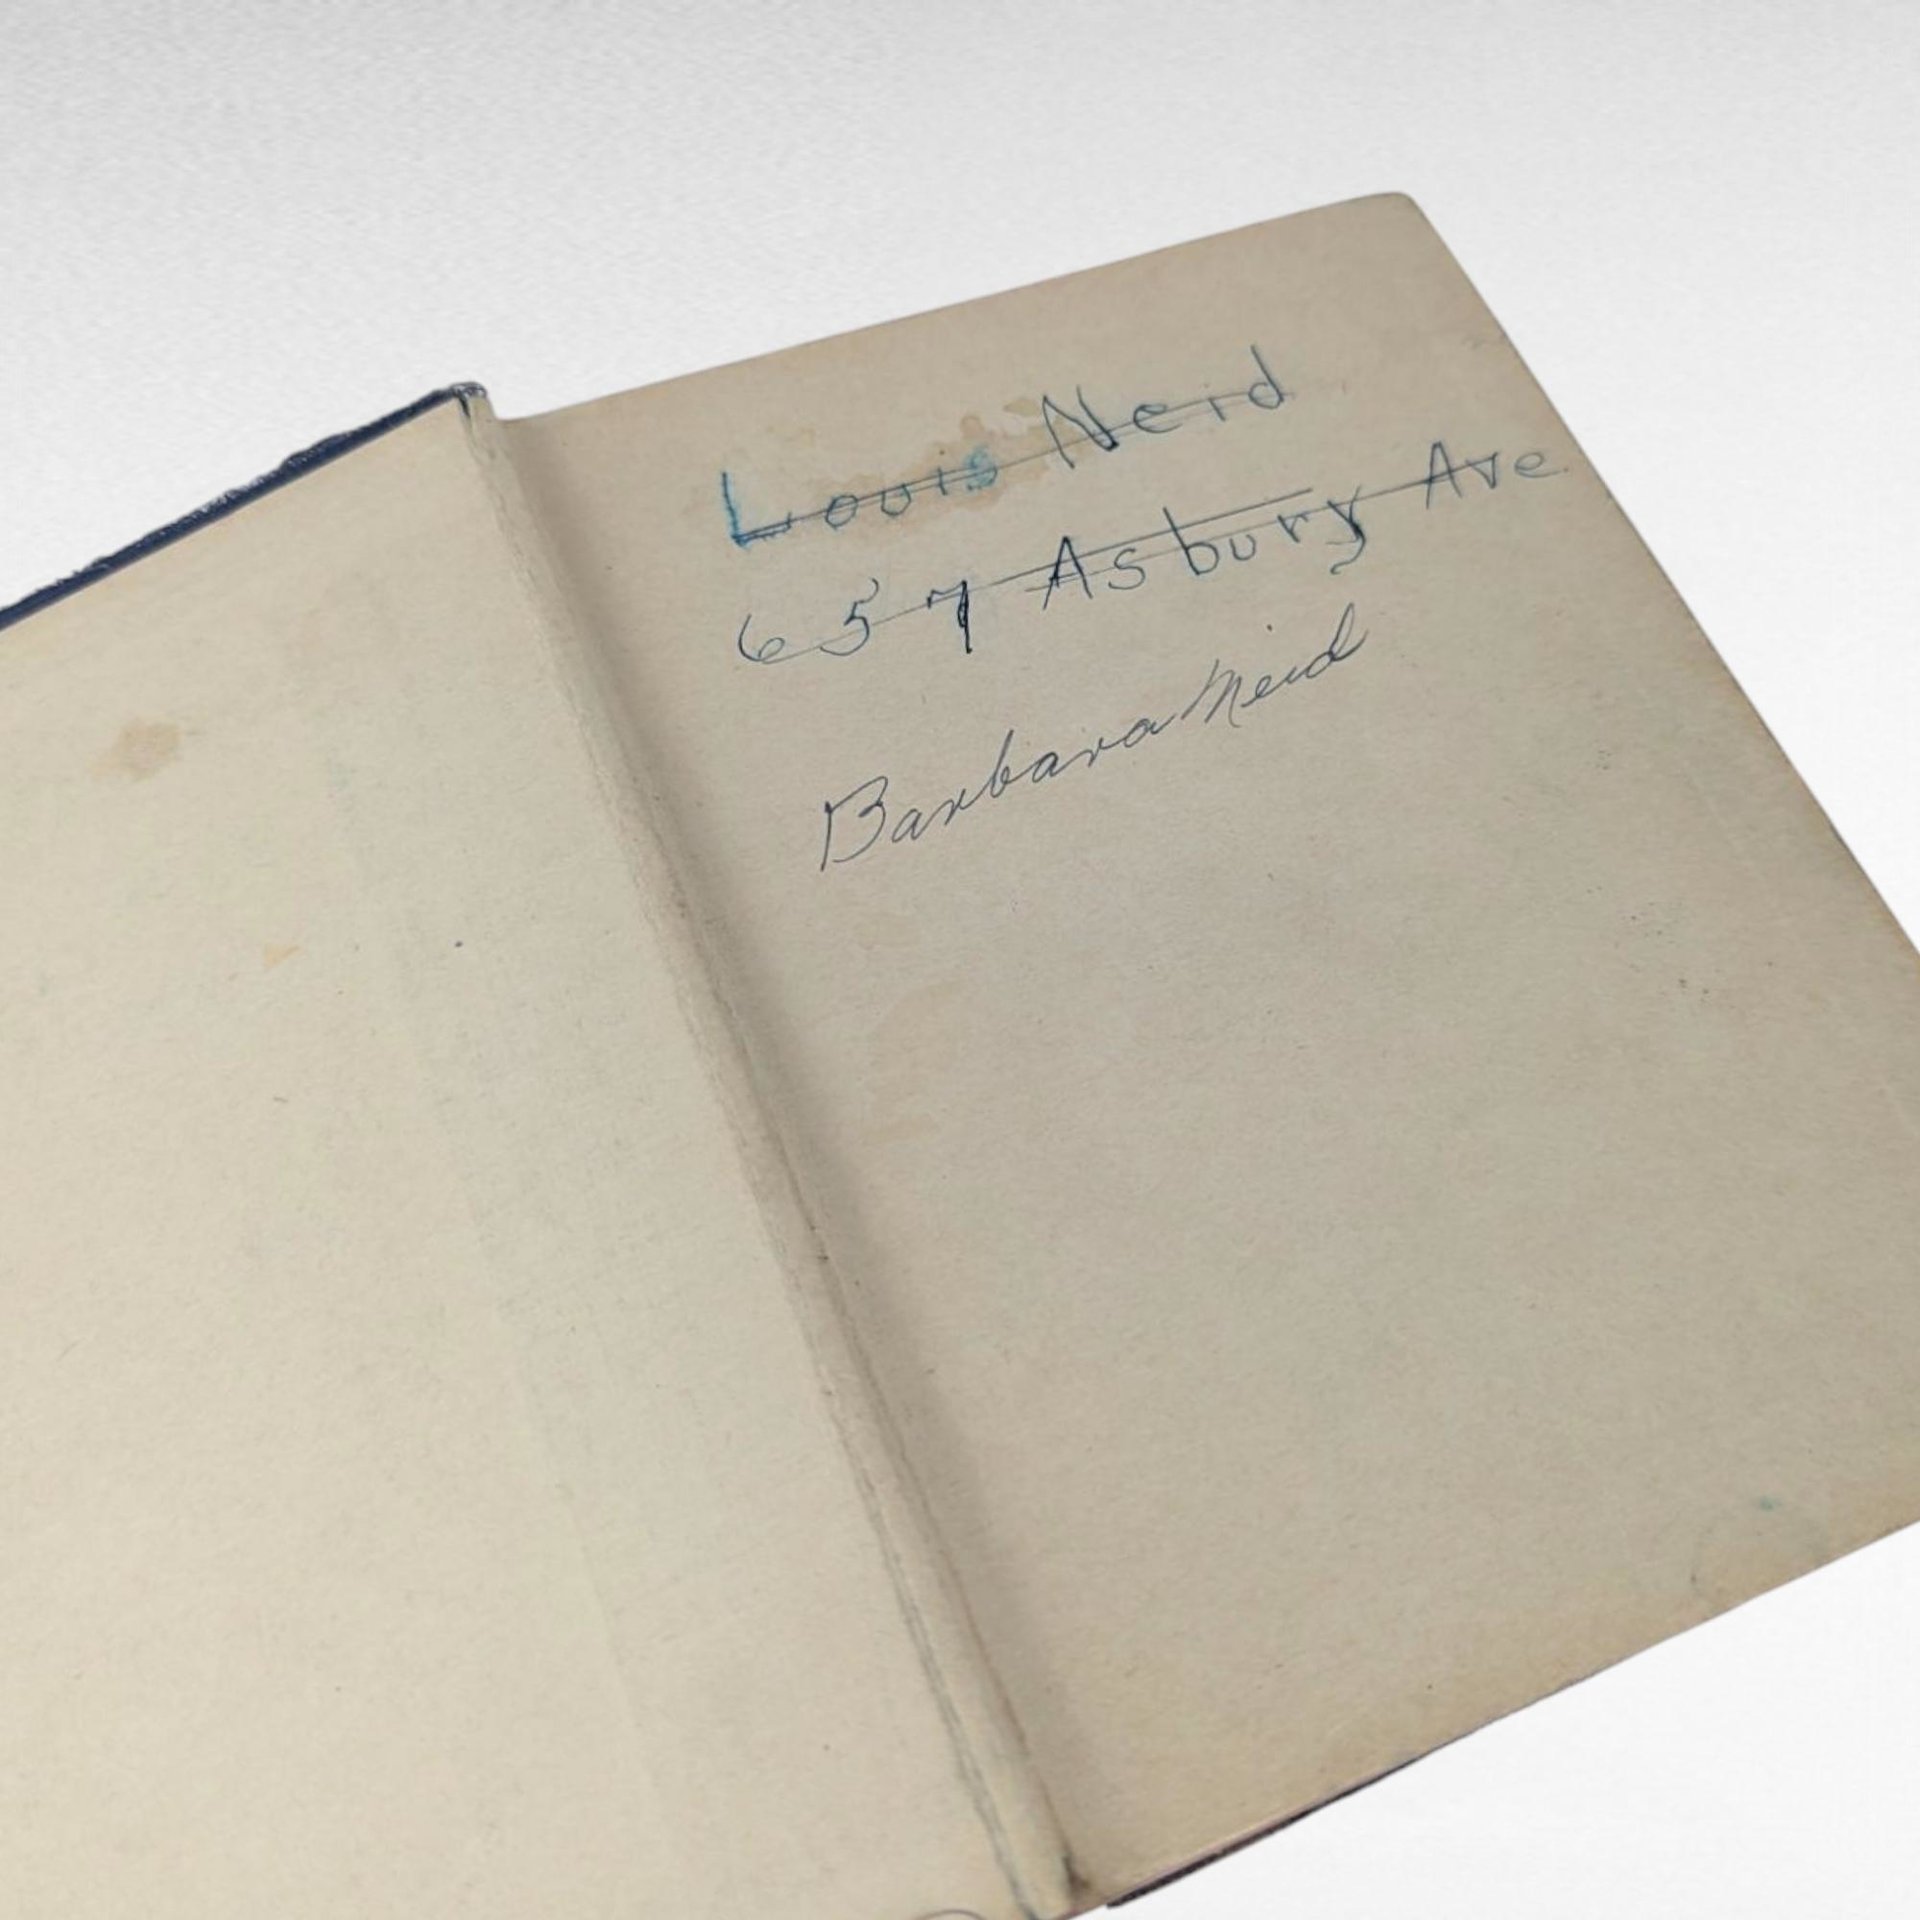 Louis Neid
657 Asbury Ave.
Barbara Neid